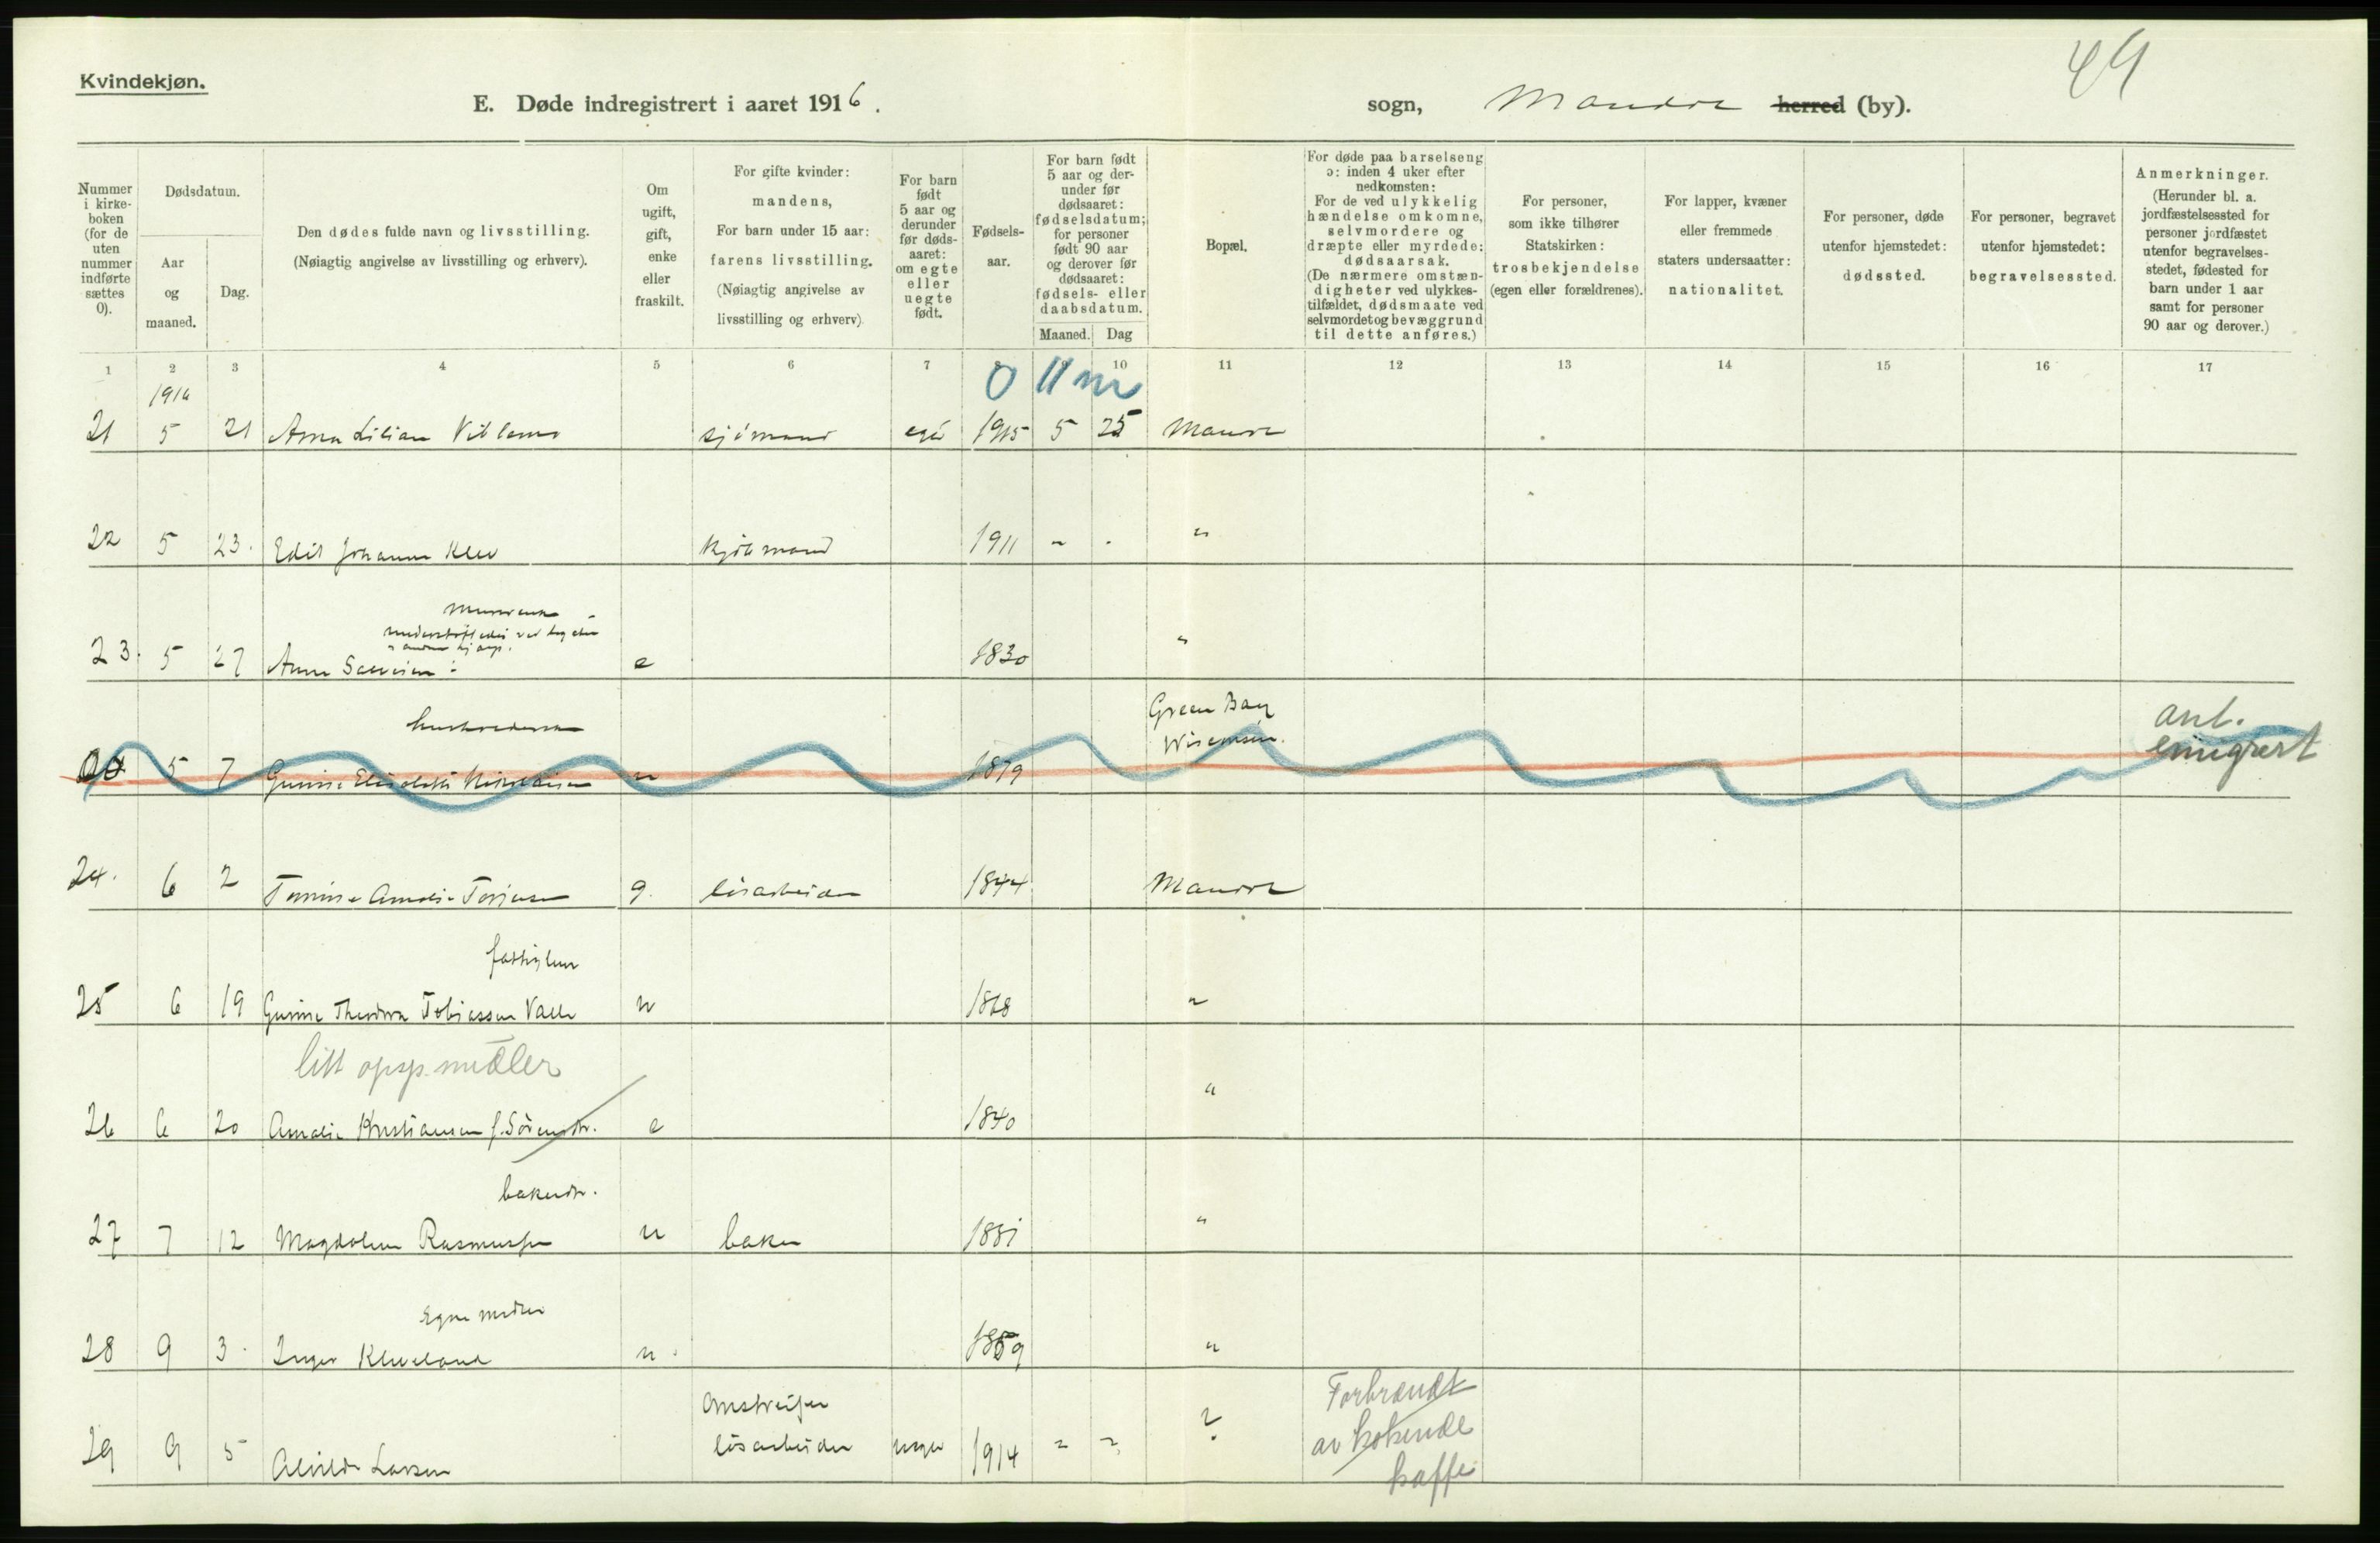 49
Kvindekjøn.
E. Døde indregistrert i aaret 1916.
sogn, Mandal herred (by).
Nummer i kirke-boken (for de uten nummer indførte sættes 0).
Dødsdatum.
Aar og maaned.
Dag.
Den dødes fulde navn og livsstilling.
(Nøiagtig angivelse av livsstilling og erhverv).
Om ugift, gift, enke eller fraskilt.
For gifte kvinder: mandens,
For barn under 15 aar: farens livsstilling.
(Nøiagtig angivelse av livsstilling og erhverv).
For barn født 5 aar og derunder før døds-aaret: om egte eller uegte født.
Fødsels-aar.
For barn født 5 aar og der-under før dødsaaret: fødselsdatum; for personer født 90 aar og derover før dødsaaret: fødsels- eller daabsdatum.
Maaned. Dag
Bopæl.
For døde paa barselseng ɔ: inden 4 uker efter nedkomsten:
For de ved ulykkelig hændelse omkomne, selvmordere og dræpte eller myrdede: dødsaarsak.
(De nærmere omstæn-digheter ved ulykkes-tilfældet, dødsmaate ved selvmordet og bevæggrund til dette anføres.)
For personer, som ikke tilhører Statskirken: trosbekjendelse (egen eller forældrenes).
For lapper, kvæner eller fremmede staters undersaatter: nationalitet.
For personer, døde utenfor hjemstedet: dødssted.
For personer, begravet utenfor hjemstedet: begravelsessted.
Anmerkninger.
(Herunder bl. a. jordfæstelsessted for personer jordfæstet utenfor begravelses-stedet, fødested for barn under 1 aar samt for personer 90 aar og derover.)
1 2 3 4 5 6 7 8 9 10 11 12 13 14 15 16 17
1916
0 11 m
21 5 21 Anna Lilian sjömand egte 1915 5 25 Mandal
22 5 23. Edit Johanne Klev kjöbmand 1911 " " "
23. 5 27 Anne e 1830 "
Green Bay
Wisconsin.
ant. emigrert
5 7 Gunine Elisabeth Nikolaisen u 1879
24. 6 2 Tomine Amalie Torjusen g. lösarbeider 1844 Mandal
fattiglem
25 6 19 Gunine Theodora Tobiassen Valle u 1868 "
litt opsp. midler
26 6 20 Amalie Kristiansen f. Sörensdtr. e 1840 "
bakerdtr.
27 7 12 Magdalene Rasmussen u baker 1851 "
Egne midler
28 9 3. Inger Kleveland u. 1859 "
Omstreifer
29 9 5 Alvilde Larsen lösarbeider uegte 1914 ? ? ?
Forbrændt
av kokende
kaffe